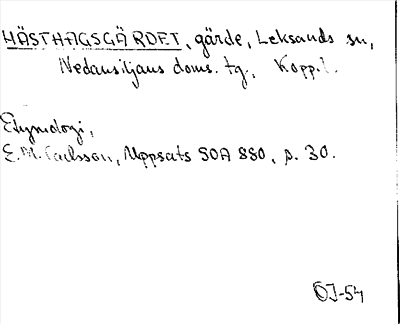 HÄSTHAGSGÄRDET, gärde, Leksands sn,
Nedansiljans doms. tg., Kopp.l.
Etymologi,
E.M. Carlsson, Uppsats SOA 880, s. 30.
ÖJ-54